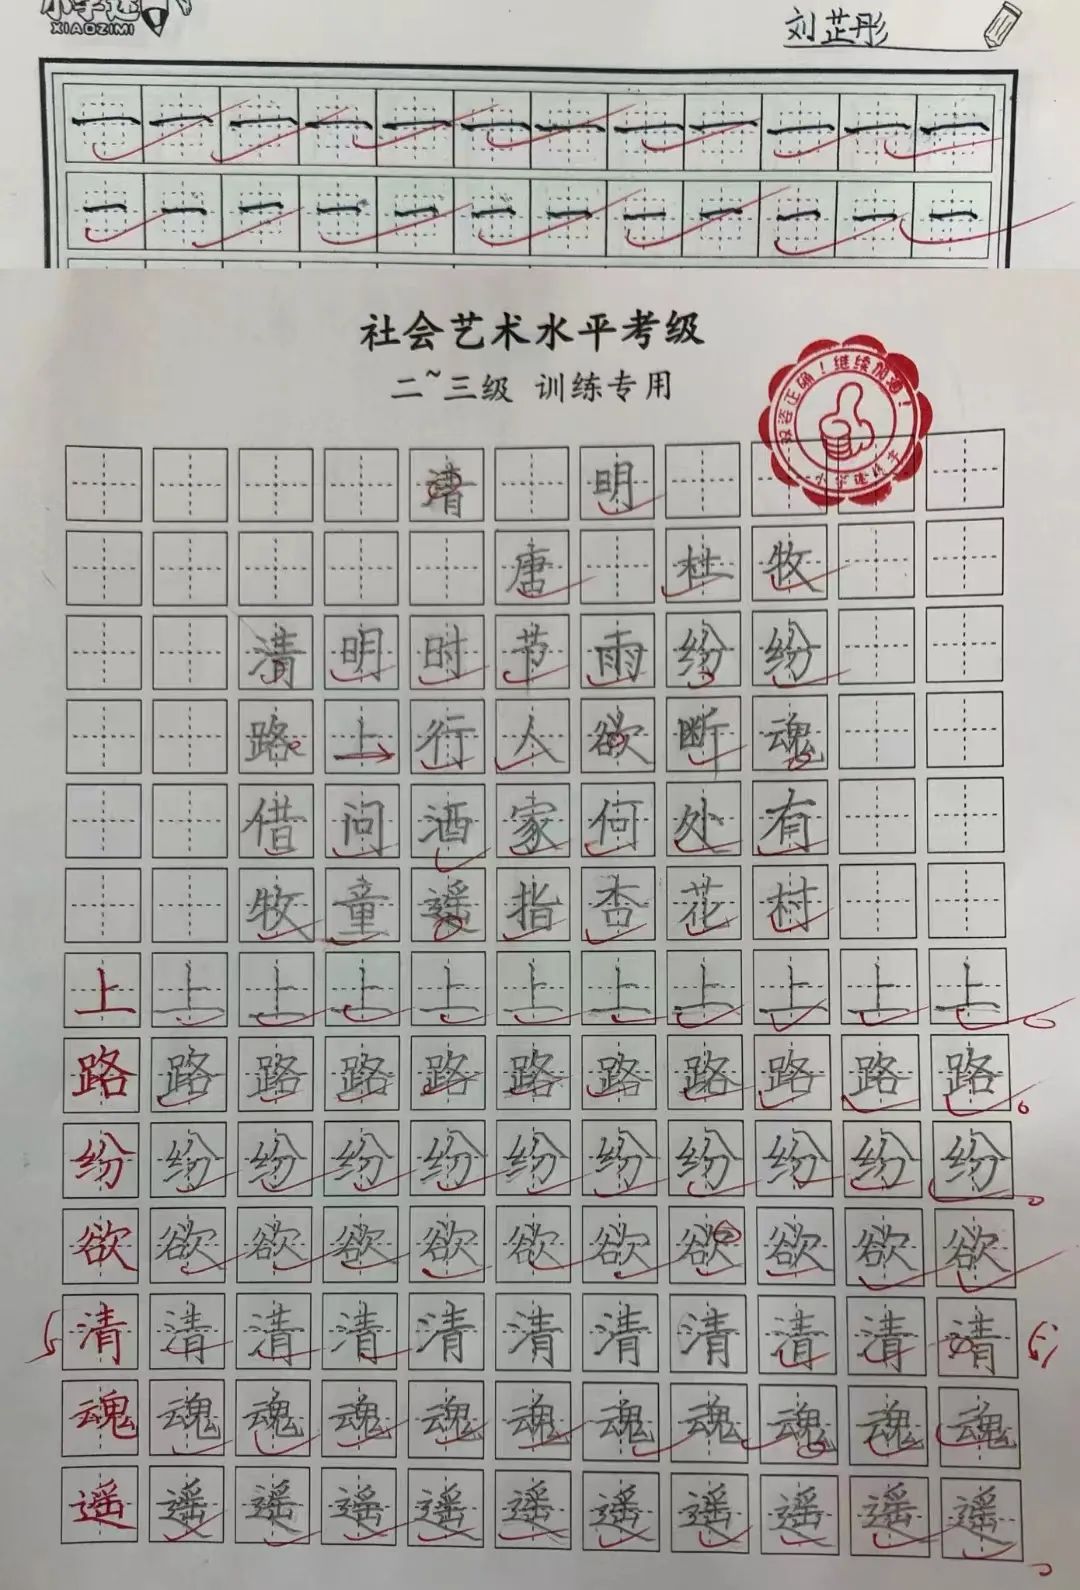 小字迷
XIAOZIMI
刘芷彤
一一一一一一一一一一一一
一一一一一一一一一一一一
社会艺术水平考级
二~三级 训练专用
双姿正确！继续加油！
小字迷练字
清明
唐 杜牧
清明时节雨纷纷
路上行人欲断魂
借问酒家何处有
牧童遥指杏花村
上上上上上上上上上上上
路路路路路路路路路路路
纷纷纷纷纷纷纷纷纷纷纷
欲欲欲欲欲欲欲欲欲欲欲
清清清清清清清清清清清
魂魂魂魂魂魂魂魂魂魂魂
遥遥遥遥遥遥遥遥遥遥遥